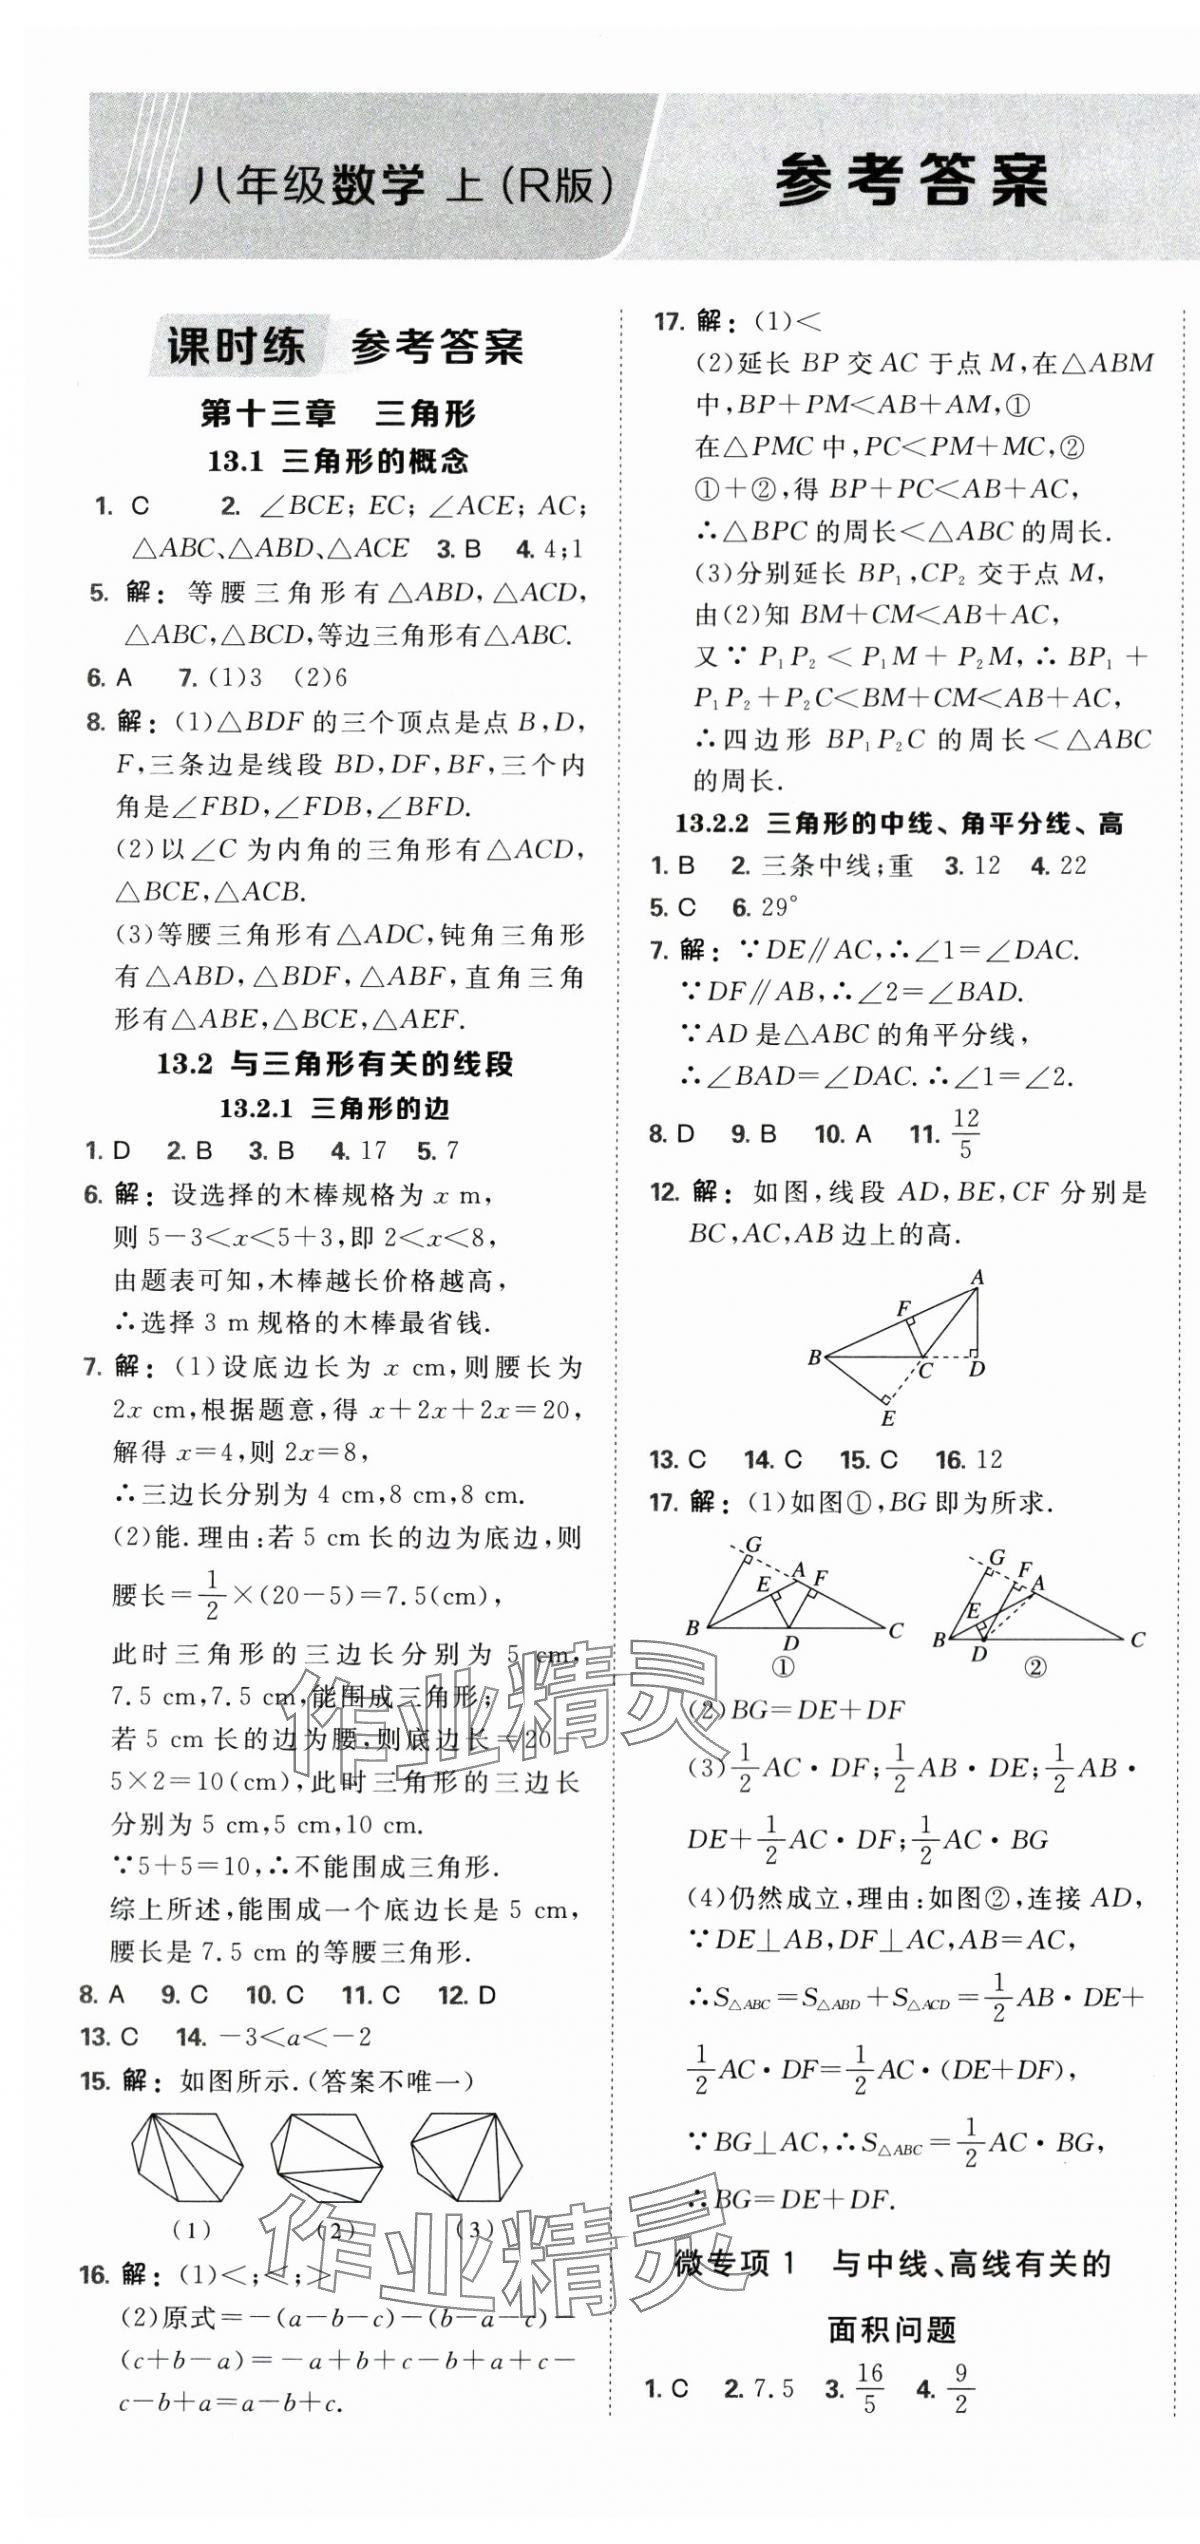 八年级数学 上(R版)
参考答案
课时练 参考答案
第十三章 三角形
13.1 三角形的概念
1. C 2. ∠BCE; EC; ∠ACE; AC;
△ABC、△ABD、△ACE 3. B 4. 4;1
5. 解: 等腰三角形有△ABD,△ACD,
△ABC,△BCD,等边三角形有△ABC.
6. A 7. (1)3 (2)6
8. 解: (1)△BDF的三个顶点是点B,D,
F,三条边是线段BD,DF,BF,三个内
角是∠FBD,∠FDB,∠BFD.
(2)以∠C为内角的三角形有△ACD,
△BCE,△ACB.
(3)等腰三角形有△ADC,钝角三角形
有△ABD,△BDF,△ABF,直角三角
形有△ABE,△BCE,△AEF.
13.2 与三角形有关的线段
13.2.1 三角形的边
1. D 2. B 3. B 4. 17 5. 7
6. 解: 设选择的木棒规格为 x m,
则5-3<x<5+3,即2<x<8,
由题表可知,木棒越长价格越高,
∴选择 3 m 规格的木棒最省钱.
7. 解: (1)设底边长为 x cm,则腰长为
2x cm,根据题意,得 x+2x+2x=20,
解得 x=4,则 2x=8,
∴三边长分别为 4 cm,8 cm,8 cm.
(2)能.理由:若 5 cm 长的边为底边,则
腰长=1/2×(20-5)=7.5(cm),
此时三角形的三边长分别为 5 cm,
7.5 cm,7.5 cm,能围成三角形;
若 5 cm 长的边为腰,则底边长=20-
5×2=10(cm),此时三角形的三边长
分别为 5 cm,5 cm,10 cm.
∵5+5=10,∴不能围成三角形.
综上所述,能围成一个底边长是 5 cm,
腰长是 7.5 cm 的等腰三角形.
8. A 9. C 10. C 11. C 12. D
13. C 14. -3<a<-2
15. 解: 如图所示.(答案不唯一)
(1) (2) (3)
16. 解: (1)<;<;>
(2)原式=-(a-b-c)-(b-a-c)-
(c+b-a)=-a+b+c-b+a+c-
c-b+a=a-b+c.
17. 解: (1)<
(2)延长 BP 交 AC 于点 M,在△ABM
中,BP+PM<AB+AM,①
在△PMC中,PC<PM+MC,②
①+②,得 BP+PC<AB+AC,
∴△BPC的周长<△ABC的周长.
(3)分别延长 BP₁,CP₂ 交于点 M,
由(2)知 BM+CM<AB+AC,
又∵P₁P₂<P₁M+P₂M,∴BP₁+
P₁P₂+P₂C<BM+CM<AB+AC,
∴四边形 BP₁P₂C 的周长<△ABC
的周长.
13.2.2 三角形的中线、角平分线、高
1. B 2. 三条中线;重 3. 12 4. 22
5. C 6. 29°
7. 解: ∵DE∥AC,∴∠1=∠DAC.
∵DF∥AB,∴∠2=∠BAD.
∵AD是△ABC的角平分线,
∴∠BAD=∠DAC.∴∠1=∠2.
8. D 9. B 10. A 11. 12/5
12. 解: 如图,线段 AD,BE,CF 分别是
BC,AC,AB边上的高.
A
F
B C D
E
13. C 14. C 15. C 16. 12
17. 解: (1)如图①,BG即为所求.
G E A F B D C ①
G F A E B D C ②
(2)BG=DE+DF
(3)1/2AC·DF;1/2AB·DE;1/2AB·
DE+1/2AC·DF;1/2AC·BG
(4)仍然成立,理由:如图②,连接 AD,
∵DE⊥AB,DF⊥AC,AB=AC,
∴S△ABC=S△ABD+S△ACD=1/2AB·DE+
1/2AC·DF=1/2AC·(DE+DF),
∵BG⊥AC,∴S△ABC=1/2AC·BG,
∴BG=DE+DF.
微专项 1 与中线、高线有关的
面积问题
1. C 2. 7.5 3. 16/5 4. 9/2
作业精灵
作业精灵